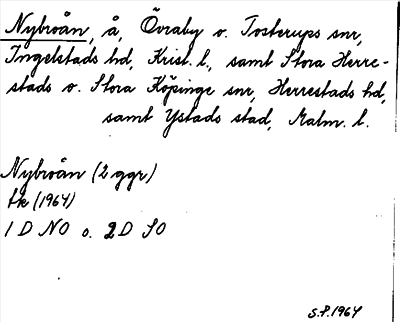 Nybroån, å, Övraby o. Tosterups snr,
Ingelstads hd, Krist. l., samt Stora Herre-
stads o. Stora Köpinge snr, Herrestads hd,
samt Ystads stad, Malm. l.
Nybroån (2 ggr)
tk (1964)
1 D NO o. 2D SO
S.P. 1964